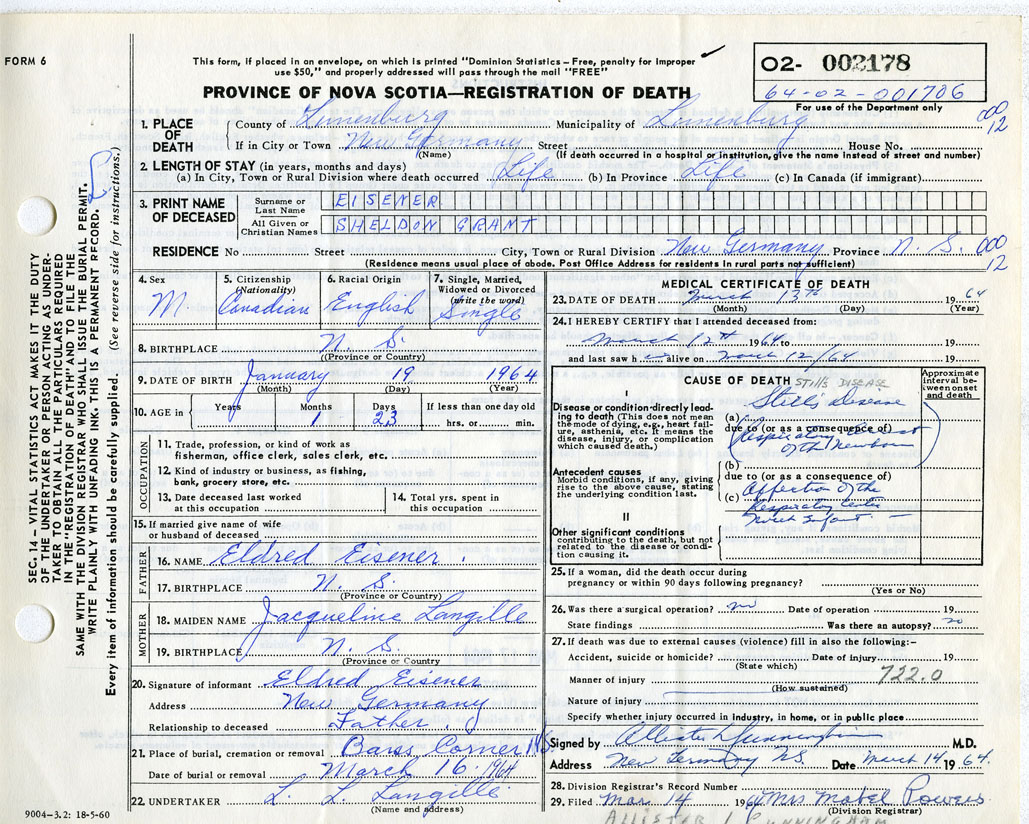 FORM 6
This form, if placed in an envelope, on which is printed "Dominion Statistics – Free, penalty for improper
use $50," and properly addressed will pass through the mail "FREE"
PROVINCE OF NOVA SCOTIA—REGISTRATION OF DEATH
O2- 002178
64-02-001706
For use of the Department only
1. PLACE OF DEATH
County of Lunenburg Municipality of Lunenburg 000 12
If in City or Town New Germany Street House No.
(Name) (If death occurred in a hospital or institution, give the name instead of street and number)
2. LENGTH OF STAY (in years, months and days)
(a) In City, Town or Rural Division where death occurred Life (b) In Province Life (c) In Canada (if immigrant)
3. PRINT NAME OF DECEASED
Surname or Last Name EISENER
All Given or Christian Names SHELDON GRANT
RESIDENCE No Street City, Town or Rural Division New Germany Province N. S. 000 12
(Residence means usual place of abode. Post Office Address for residents in rural parts not sufficient)
4. Sex M.
5. Citizenship (Nationality) Canadian
6. Racial Origin English
7. Single, Married, Widowed or Divorced (write the word) Single
8. BIRTHPLACE N. S.
(Province or Country)
9. DATE OF BIRTH January 19 1964
(Month) (Day) (Year)
10. AGE in Years Months Days If less than one day old
1 23 hrs. or min.
OCCUPATION
11. Trade, profession, or kind of work as
fisherman, office clerk, sales clerk, etc.
12. Kind of industry or business, as fishing,
bank, grocery store, etc.
13. Date deceased last worked
at this occupation
14. Total yrs. spent in
this occupation
15. If married give name of wife
or husband of deceased
FATHER
16. NAME Eldred Eisener
17. BIRTHPLACE N. S.
(Province or Country)
MOTHER
18. MAIDEN NAME Jacqueline Langille
19. BIRTHPLACE N. S.
(Province or Country
20. Signature of informant Eldred Eisener
Address New Germany
Relationship to deceased Father
21. Place of burial, cremation or removal Barss Corner N.S.
Date of burial or removal March 16, 1964
22. UNDERTAKER L. L. Langille
(Name and address)
9004-3.2: 18-5-60
MEDICAL CERTIFICATE OF DEATH
23. DATE OF DEATH March 13th 19 64
(Month) (Day)
24. I HEREBY CERTIFY that I attended deceased from:
March 12th 1964 to 19
and last saw h alive on March 12/64 19
CAUSE OF DEATH STILL'S DISEASE
Approximate interval between onset and death
I
Disease or condition directly leading to death (This does not mean the mode of dying, e.g., heart failure, asthenia, etc. It means the disease, injury, or complication which caused death.)
(a) Still's Disease
due to (or as a consequence of)
Respiratory
of the Newborn
(b)
Antecedent causes
Morbid conditions, if any, giving rise to the above cause, stating the underlying condition last.
due to (or as a consequence of)
(c) Affection of the
Respiratory Center
Infant
II
Other significant conditions
contributing to the death, but not related to the disease or condition causing it.
25. If a woman, did the death occur during
pregnancy or within 90 days following pregnancy?
(Yes or No)
26. Was there a surgical operation? no Date of operation 19
State findings Was there an autopsy? no
27. If death was due to external causes (violence) fill in also the following:–
Accident, suicide or homicide? Date of injury 19
(State which)
Manner of injury 722.0
(How sustained)
Nature of injury
Specify whether injury occurred in industry, in home, or in public place
Signed by Allister Cunningham M.D.
Address New Germany NS. Date March 14 1964.
28. Division Registrar's Record Number
29. Filed Mar. 14 1964 Mrs Mabel Powers
(Division Registrar)
ALLISTER CUNNINGHAM
SEC. 14 – VITAL STATISTICS ACT MAKES IT THE DUTY
OF THE UNDERTAKER OR PERSON ACTING AS UNDER-
TAKER TO OBTAIN ALL THE PARTICULARS REQUIRED
IN THE "REGISTRATION OF DEATH" AND TO FILE THE
SAME WITH THE DIVISION REGISTRAR WHO SHALL ISSUE THE BURIAL PERMIT.
WRITE PLAINLY WITH UNFADING INK. THIS IS A PERMANENT RECORD.
Every item of information should be carefully supplied. (See reverse side for instructions.)